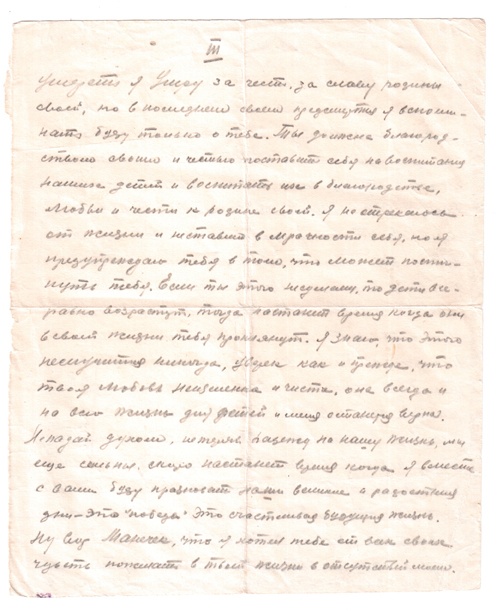 III
умереть я умру за честь, за славу родины
своей, но в последнем своем я вспоми-
нать буду только о тебе. Ты должна благород-
ством своим и честью поставить себя на воспитания
наших детей и воспитать их в благородстве,
любви и чести к родине своей. Я не отрекаюсь
от жизни и не ставлю в мрачности себя, но я
предупреждаю тебя в том, что может пости-
нуть тебя. Если ты этого несделаеш, то дети все-
равно возрастут, тогда настанет время когда они
в своей жизни тебя проклянут. Я знаю что этого
неслучится никогда, уверен как и прежде, что
твоя любовь неизменна и чиста, она всегда и
на всю жизнь для детей и меня останется верна.
Непадай духом, на нашу жизнь, мы
еще сильны. скоро настанет время когда я вместе
с вами буду празноват наши великие и радостния
дни – это "победы" это счастливая будущия жизнь.
Ну вот что я хотел тебе от всех своих
чувств пожелать в твоей жизни в отсутствии моем.